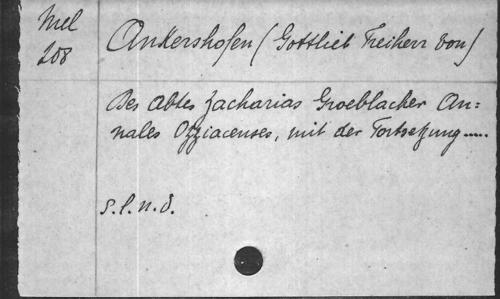 Mel
208
Ankershofen (Gottlieb Freiherr von)
Des Abtes Zacharias Groeblacher An=
nales Ozziacenses, mit der Fortsetzung.....
s.l.n.d.